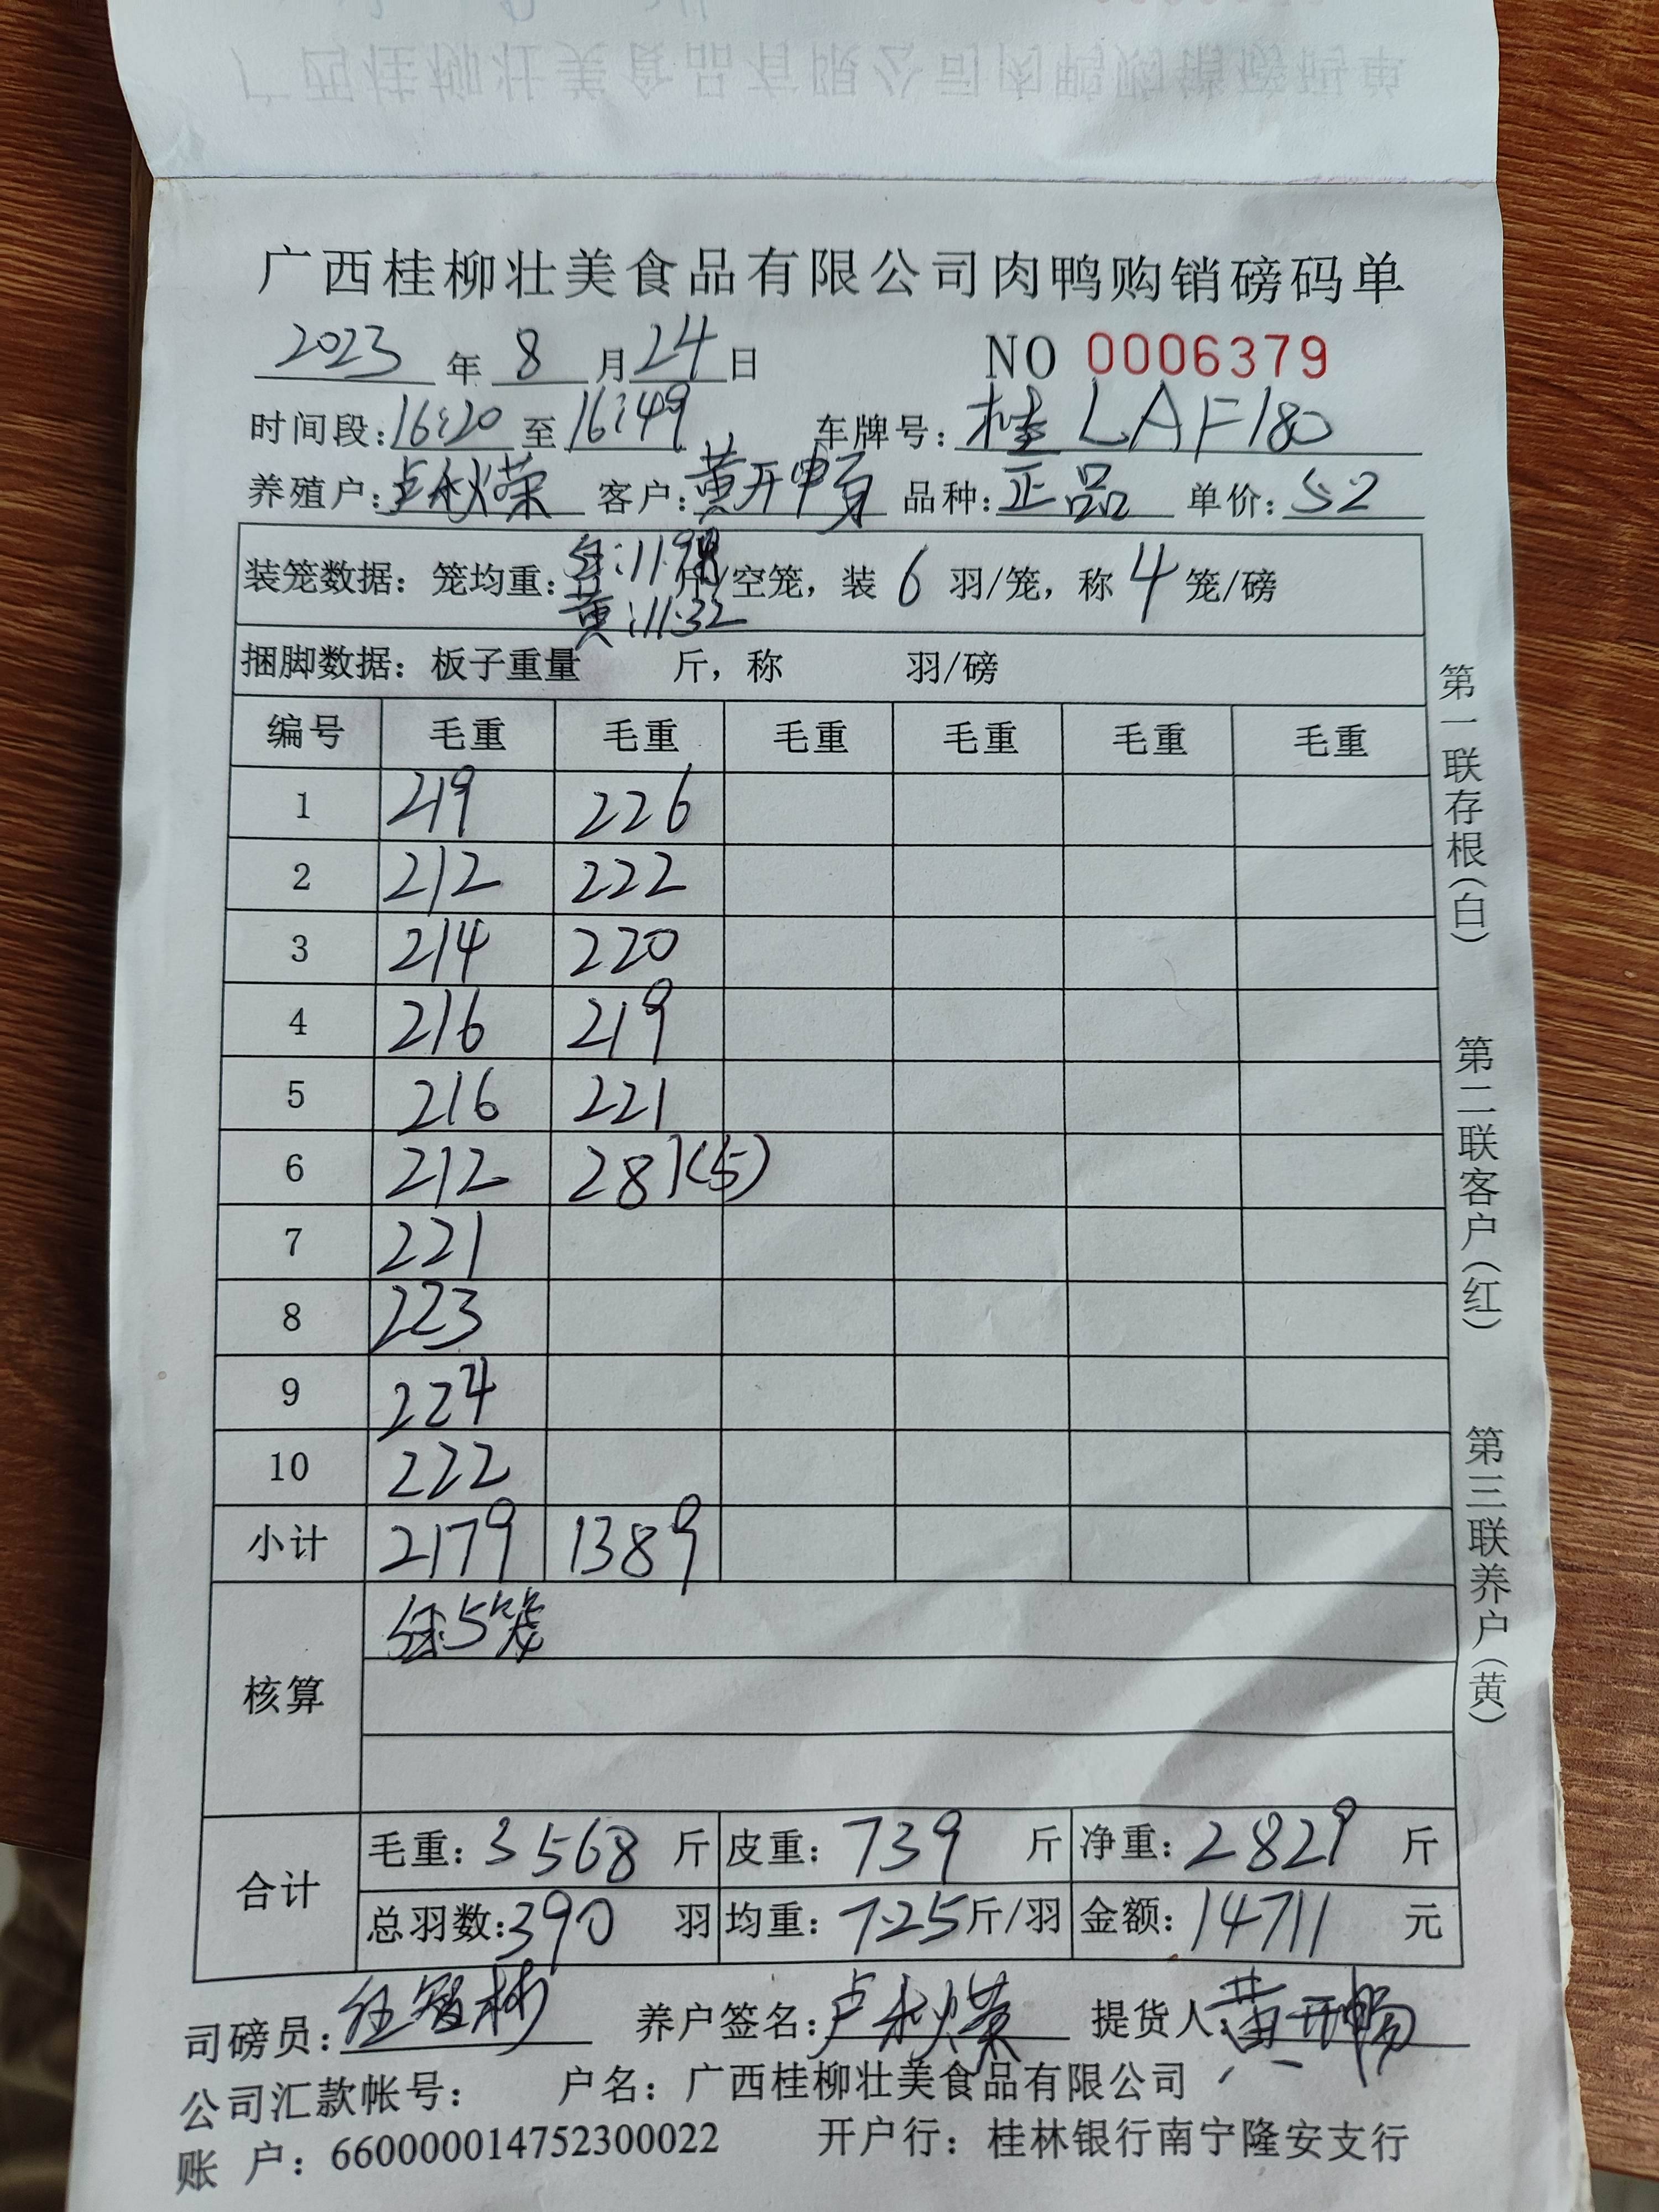 广西桂柳壮美食品有限公司肉鸭购销磅码单
2023 年 8 月 24 日 NO 0006379
时间段: 16:20 至 16:49 车牌号: 桂LAF180
养殖户: 卢秋荣 客户: 黄开畅 品种: 正品 单价: 52
装笼数据: 笼均重: 红:11.98 黄:11.32 斤/空笼, 装 6 羽/笼, 称 4 笼/磅
捆脚数据: 板子重量 斤, 称 羽/磅
编号 毛重 毛重 毛重 毛重 毛重 毛重
1 219 226
2 212 222
3 214 220
4 216 219
5 216 221
6 212 281(5)
7 221
8 223
9 224
10 222
小计 2179 1389
核算 红:5笼
合计 毛重: 3568 斤 皮重: 739 斤 净重: 2829 斤
总羽数: 390 羽 均重: 7.25 斤/羽 金额: 14711 元
司磅员: 养户签名: 卢秋荣 提货人: 黄开畅
公司汇款帐号: 户名: 广西桂柳壮美食品有限公司
账 户: 660000014752300022 开户行: 桂林银行南宁隆安支行
第一联存根(白) 第二联客户(红) 第三联养户(黄)